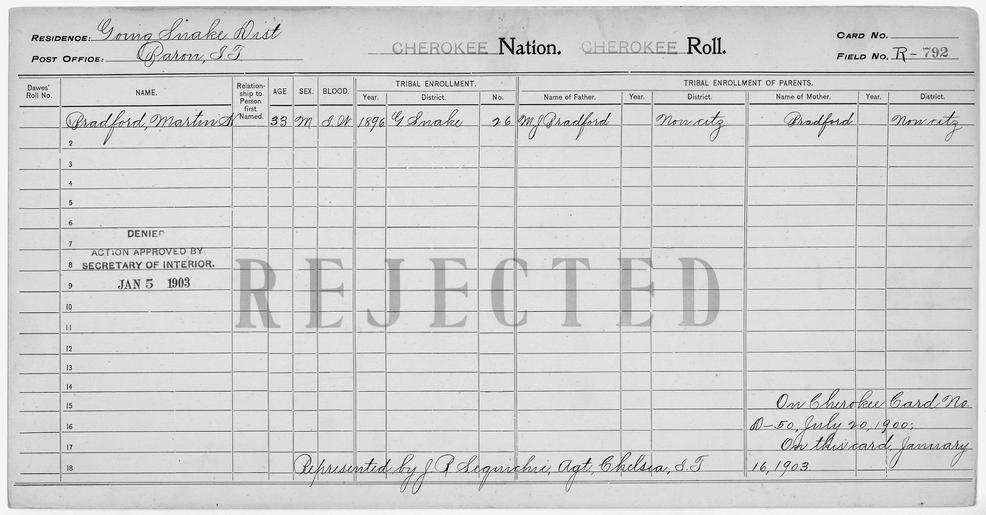 RESIDENCE: Going Snake Dist
POST OFFICE: Baron, I.T.
CHEROKEE Nation. CHEROKEE Roll.
CARD NO.
FIELD NO. R-792
Dawes' Roll No. NAME. Relationship to Person first Named. AGE SEX. BLOOD. TRIBAL ENROLLMENT. TRIBAL ENROLLMENT OF PARENTS.
Year. District. No. Name of Father. Year. District. Name of Mother. Year. District.
Bradford, Martin 33 M I.W 1896 G Snake 26 M J Bradford Non citz Bradford Non citz
2
3
4
5
6
DENIED
7
ACTION APPROVED BY
8 SECRETARY OF INTERIOR.
9 JAN 5 1903
REJECTED
10
11
12
13
14
15 On Cherokee Card No.
16 D-50, July 20, 1900:
17 On this card, January
18 Represented by J R Agt, Chelsea, I.T 16, 1903